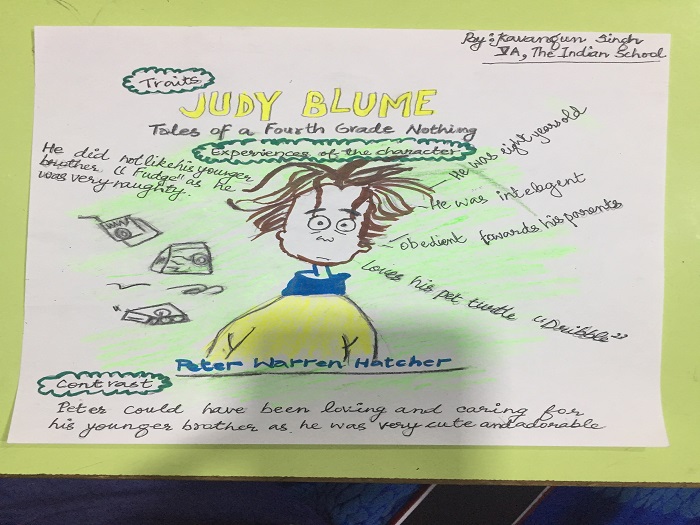 By: Kavangun Singh
VA, The Indian School
Traits
JUDY BLUME
Tales of a Fourth Grade Nothing
Experiences of the character
He did not like his younger
brother "Fudge" as he
was very naughty.
He was eight years old
He was intelegent
obedient towards his parents
Loves his pet turtle "Dribble"
Peter Warren Hatcher
Contrast
Peter could have been loving and caring for
his younger brother as he was very cute and adorable